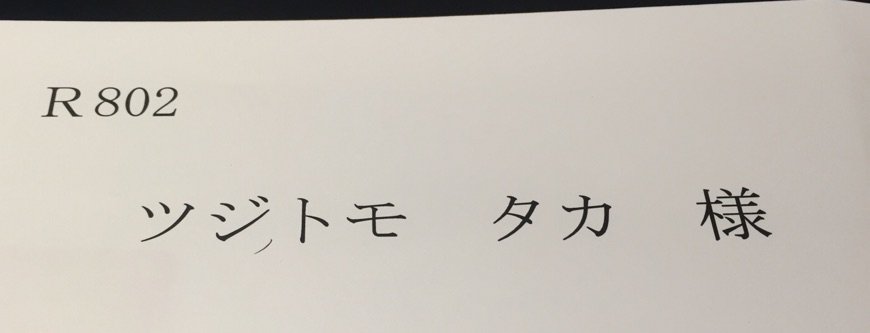 R 802
ツジトモ　タカ　様